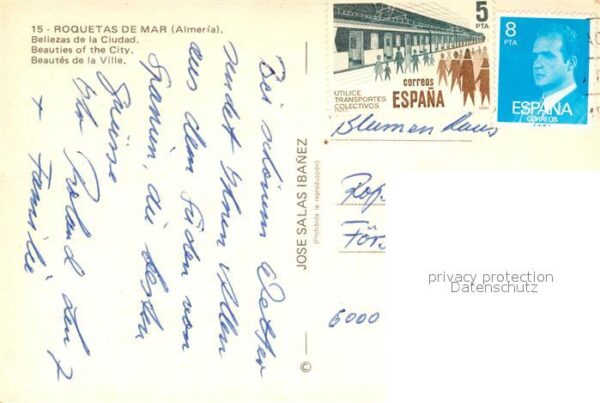 15 - ROQUETAS DE MAR (Almería).
Bellezas de la Ciudad.
Beauties of the City.
Beautés de la Ville.
Bei schönem Wetter
sendet Ihnen allen
aus dem Süden von
Spanien, die besten
Grüsse
Ihr Roland
+ Familie
JOSE SALAS IBAÑEZ
(Prohibida la reproducción)
©
5
PTA
correos
ESPAÑA
UTILICE
TRANSPORTES
COLECTIVOS
8
PTA
ESPAÑA
CORREOS
Blumenhaus
6000
privacy protection
Datenschutz